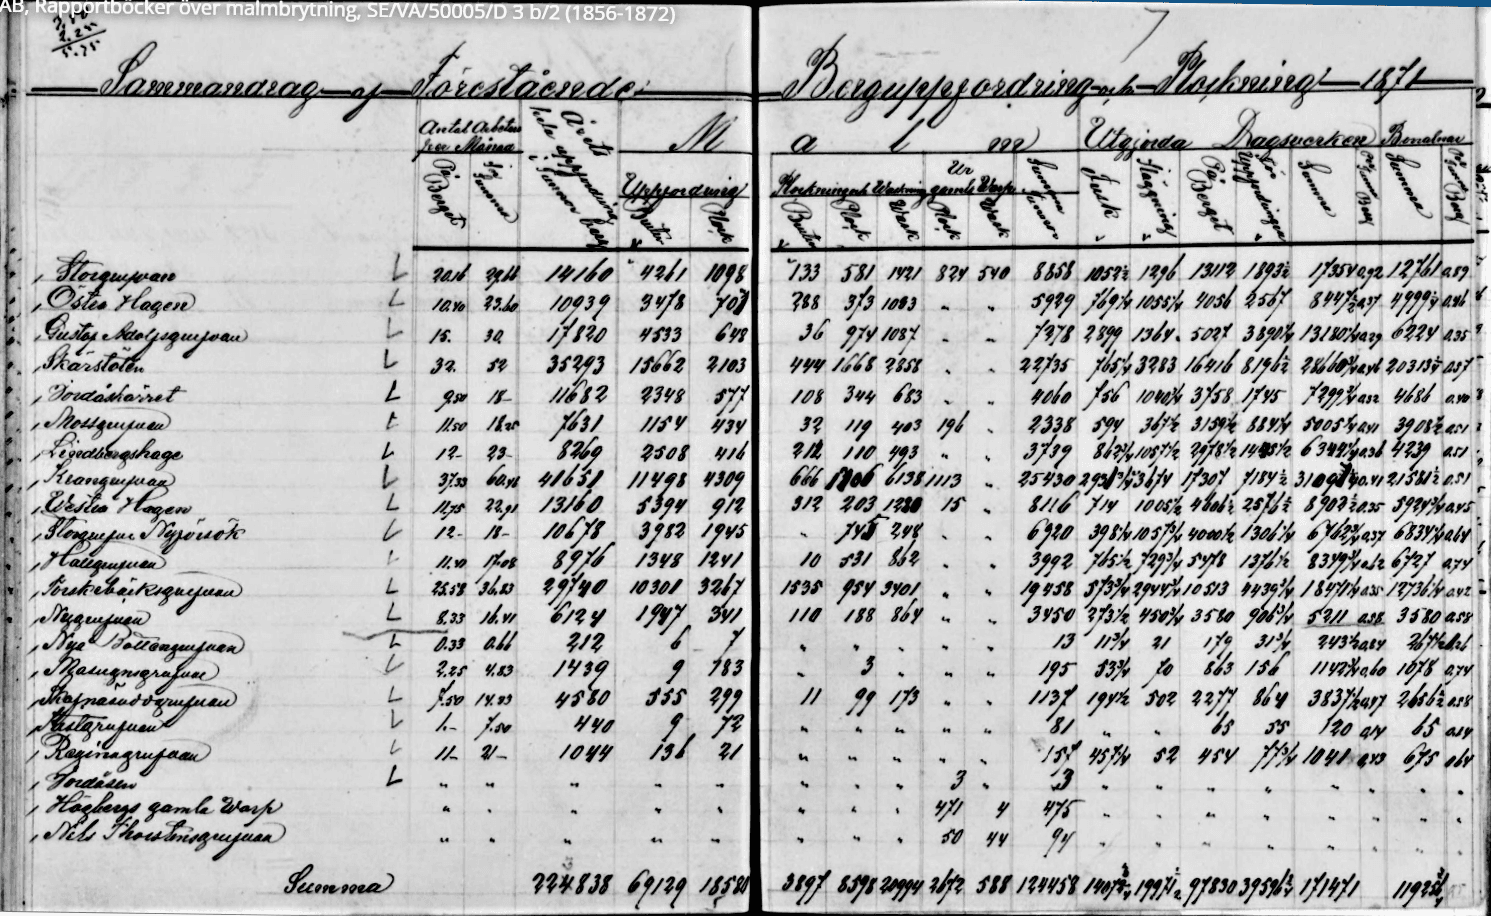 AB, Rapportböcker över malmbrytning, SE/VA/50005/D 3 b/2 (1856-1872)
2.25
5.75
7
Sammandrag af Förestående Berguppfordring och Plockning 1871
Antal Arbetare per Månad Årets hela uppfordring Tunnor berg M a l m Utgjorda Dagsverken Bonalnar
På Berget Summa Uppfordring Plockning och Waskning Ur gamla Warp Summa Tunnor Jusk Släggning På Berget För Uppfordringen Summa Summa
Plock Plock Wask Plock Wask
Storgrufvan 20.16 29.66 14160 4261 1098 133 581 1421 824 540 8858 1052½ 1296 13112 1893½ 17354 0.92 12761 0.89
Östra Hagen 10.40 23.60 10939 3478 707 288 373 1083 " " 5929 769¼ 1055¼ 4056 2567 8447½ 0.37 4999¼ 0.46
Gustaf Adolfsgrufvan 15. 30. 17820 4533 648 36 974 1087 " " 7278 2899 1364 5027 3890¼ 13180¼ 0.29 6224 0.35
Skärstöten 32. 52 35293 15662 2103 444 1668 2858 " " 22735 765¼ 3283 16416 8196½ 28660¾ 0.46 20313½ 0.57
Jordåskärret 9.50 18- 11682 2348 577 108 344 683 " " 4060 756 1040¼ 3758 1745 7299¾ 0.32 4686 0.40
Mossgrufvan 11.50 18.25 7631 1154 434 32 119 403 196 " 2338 594 367½ 3159½ 884¼ 5005¼ 0.41 3908½ 0.51
Lindbergshage 12- 23- 8269 2508 416 212 110 493 " " 3739 862¼ 1057½ 2978½ 1445½ 6344¼ 0.36 4239 0.51
Krangrufvan 37.33 60.46 41651 11498 4309 666 1706 6138 1113 " 25430 3674 17307 7184½ 0.41 21581½ 0.51
Westra Hagen 11.75 22.91 13160 5394 912 312 203 1280 15 " 8116 714 1005½ 4606½ 2576½ 8902½ 0.35 5924¾ 0.45
Storgrufve Nyförsök 12- 18- 10678 3982 1945 " 745 248 " " 6920 398¼ 1057¾ 4000½ 1306¼ 6762¾ 0.37 6834¼ 0.64
Hallegrufvan 11.40 17.08 8976 1348 1241 10 531 862 " " 3992 765½ 729¾ 5478 1376½ 8349¾ 0.62 6727 0.74
Torskebäcksgrufvan 25.58 36.83 29740 10301 3267 1535 954 3401 " " 19458 573¾ 2944¾ 10513 4439¾ 18471¼ 0.35 12736¼ 0.42
Nygrufvan 8.33 16.41 6124 1947 341 110 188 864 " " 3450 273½ 450¾ 3580 906¾ 5211 0.58 3580 0.58
Nya Bottengrufvan 0.33 0.66 212 6 7 " " " " " 13 11¾ 21 179 31¾ 243½ 0.84 267½ 1.26
Masugnsgrufvan 2.25 4.83 1439 9 183 " 3 " " " 195 53¾ 70 863 156 1142¾ 0.60 1078 0.74
Skafnäsuddsgrufvan 7.50 14.83 4580 555 299 11 99 173 " " 1137 194½ 502 2277 864 3837½ 0.47 2656½ 0.58
1.- 7.50 440 9 72 " " " " " 81 " " 65 55 120 0.14 65 0.14
Reginagrufvan 11- 21- 1044 136 21 " " " " " 157 457¼ 52 454 77¾ 1041 0.43 675 0.64
Jordåsen " " " " " " " " 3 " 3 " " " " " " " "
Högbergs gamla Warp " " " " " " " " 471 4 475 " " " " " " " "
Nils Thorstensgrufvan " " " " " " " " 50 44 94 " " " " " " " "
Summa 224838 69129 18580 3897 8598 20994 2672 588 124458 97830 39596¾ 171471